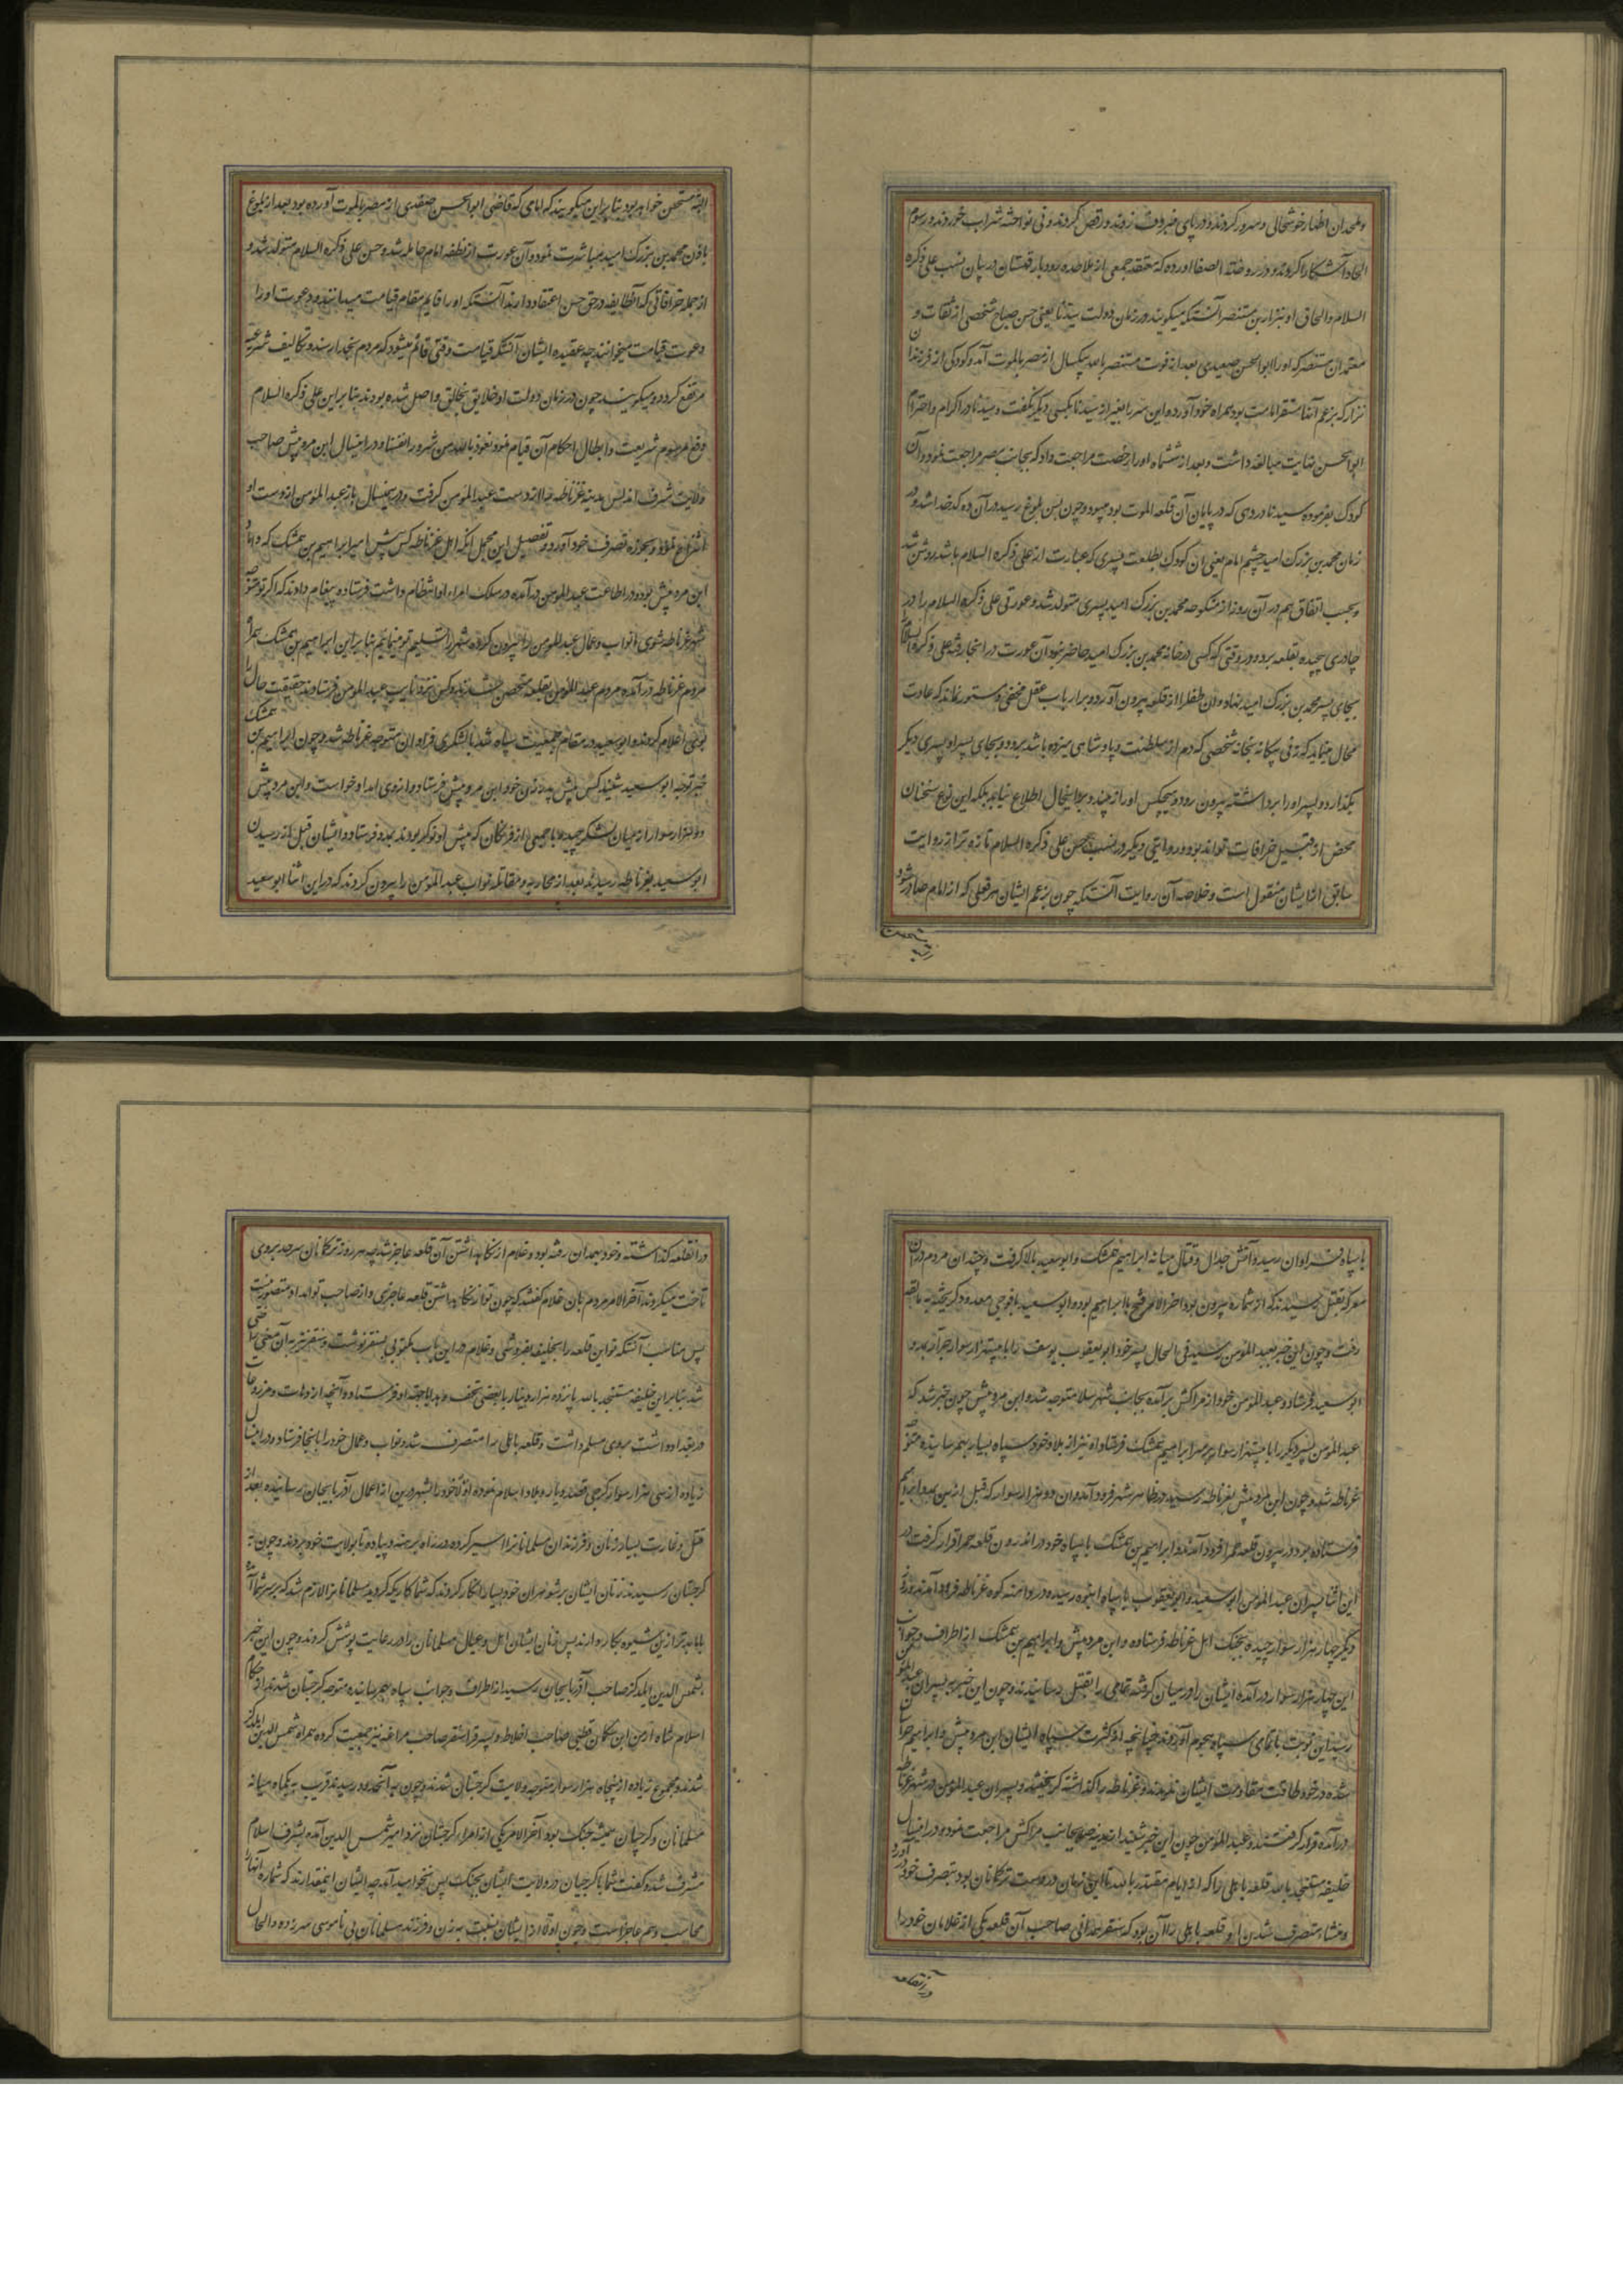 و ملحدان اظهار خوشحالی و سرور کردند و در پای منبر دف زدند و رقص کردند و نی نواخته شراب خوردند و رسوم
الحاد آشکارا کردند و در روضة الصفا آورده که معتقد جمعی از ملاحده رودبار قهستان در بیان نسب علی ذکره
السلام و الحاق او بنزار بن مستنصر آنستکه میگویند در زمان دولت سیدنا یعنی حسن صباح شخصی از ثقات و
معتمدان مستنصر که او را ابوالحسن صعیدی بعد از فوت مستنصر بالله بیکسال از مصر بالموت آمد و کودکی از فرزندان
نزار که بزعم آنها مستقر امامت بود همراه خود آورده این سر را بغیر از سیدنا بکسی دیگر نگفت و سیدنا در اکرام و احترام
ابوالحسن نهایت مبالغه داشت و بعد از ششماه او را رخصت مراجعت داد که بجانب مصر مراجعت نمود و آن
کودک بفرموده سیدنا در دهی که در پایان آن قلعه الموت بود میبود و چون بسن بلوغ رسید در آن ده کدخدا شد و در
زمان محمد بن بزرک امید چشم امام یعنی آن کودک بطلعت پسری که عبارت از علی ذکره السلام باشد روشن شد
و بحسب اتفاق هم در آن روز از منکوحه محمد بن بزرک امید پسری متولد شد و عورتی علی ذکره السلام را در
چادری پیچیده بقلعه برد و در وقتی که کسی در خانه محمد بن بزرک امید حاضر نبود آن عورت در انجا رفته علی ذکره السلام
بجای پسر محمد بن بزرک امید نهاد و آن طفل را از قلعه بیرون آورد و بر ارباب عقل مخفی و مستور نماند که عادت
محال مینماید که زنی بیکانه بخانه شخصی که دم از سلطنت و پادشاهی میزده باشد برود و بجای پسر او پسری دیگر
بگذارد و پسر او را برداشته بیرون رود و هیچکس او را نه بیند و بر اینحال اطلاع نیابد بلکه این نوع سخنان
محض از قبیل خرافات تواند بود و روایتی دیگر در نسب حسن علی ذکره السلام تازه تر از روایت
سابق از ایشان منقول است و خلاصه آن روایت آنستکه چون بزعم ایشان هر فعلی که از امام صادر شود
البته مستحسن خواهد بود بنا بر این میگویند که امامی که قاضی ابوالحسن صعیدی از مصر بالموت آورده بود بعد از بلوغ
با زن محمد بن بزرک امید مباشرت نمود و آن عورت از نطفه امام حامله شد و حسن علی ذکره السلام متولد شد و
از جمله خرافاتی که آنطایفه در حق حسن اعتقاد دارند آنستکه او را قایم مقام قیامت میدانند و دعوت او را
دعوت قیامت میخوانند چه عقیده ایشان آنکه قیامت وقتی قائم میشود که مردم بخدا رسند و تکالیف شرعیه
مرتفع کردد و میگویند چون در زمان دولت او خلایق بخالق واصل شده بودند بنا بر این علی ذکره السلام
رفع رسوم شریعت و ابطال احکام آن قیام نمود نعوذ بالله من شرور انفسنا و در اینسال ابن مردنیش صاحب
ولایت شرف اندلس مدینه غرناطه را از دست عبدالمومن گرفت و در اینسال باز عبدالمومن از دست او
انتزاع نمود و بحوزه تصرف خود آورد و تفصیل این مجمل انکه اهل غرناطه کس پیش امیر ابراهیم بن همشک که داماد
ابن مردنیش بود و در اطاعت عبدالمومن در آمده در سلک امراء او انتظام داشت فرستاده پیغام دادند که اگر تو متوجه
شهر غرناطه شوی ما نواب و عمال عبدالمومن را بیرون کرده شهر را تسلیم تو مینمائیم بنا بر این ابراهیم بن همشک همراه
مردم غرناطه در آمده مردم عبدالمومن بقلعه متحصن شدند و کس نزد نایب عبدالمومن فرستادند حقیقت حال را
بوی اعلام کردند و ابوسعید در مقام جمعیت سپاه شد با لشکری فراوان متوجه غرناطه شد و چون ابراهیم بن همشک
خبر توجه ابوسعید شنید کس پیش پدر زن خود ابن مردنیش فرستاد و از وی امداد خواست و ابن مردنیش
دو هزار سوار از میان لشکر چیده با جمعی از فرنگان که پیش او نوکر بودند بمدد فرستاد و ایشان قبل از رسیدن
ابوسعید بغرناطه رسیدند بعد از محاربه و مقاتله نواب عبدالمومن را بیرون کردند که در این اثنا ابوسعید
با سپاه فراوان رسید و آتش جدال و قتال میانه ابراهیم همشک و ابوسعید بالا گرفت و چندان مردم در آن
معرکه بقتل رسیدند که از شماره بیرون بود آخر الامر فتح با ابراهیم بود و ابوسعید با فوجی معدود گریخته به مالقه
رفت و چون این خبر بعبدالمومن رسید فی الحال پسر خود ابو یعقوب یوسف را با بیست هزار سوار جرار بمدد
ابوسعید فرستاد و عبدالمومن خود از مراکش بر آمده بجانب شهر سلا متوجه شد و ابن مردنیش چون خبر شد که
عبدالمومن پسر دیگر را با بیست هزار سوار بر سر ابراهیم همشک فرستاد او نیز از بلاد خود سپاه بسیار بهم رسانیده متوجه
غرناطه شد و چون ابن مردنیش بغرناطه رسید در ظاهر شهر فرود آمد و آن دو هزار سوار که قبل از این بمدد ابراهیم
فرستاده بود در بیرون قلعه حمرا فرود آمدند و ابراهیم بن همشک با سپاه خود در اندرون قلعه حمرا قرار گرفت در
این اثنا پسران عبدالمومن ابوسعید و ابو یعقوب با سپاه انبوه رسیده در دامنه کوه غرناطه فرود آمدند و روز
دیگر چهار هزار سوار چیده بجنک اهل غرناطه فرستاده و ابن مردنیش و ابراهیم بن همشک از اطراف و جوانب
این چهار هزار سوار در آمده ایشان را در میان گرفته تمامی را بقتل رسانیدند و چون این خبر به پسران عبدالمومن
رسید این نوبت با تمامی سپاه هجوم آوردند چنانچه از کثرت سپاه ایشان ابن مردنیش و ابراهیم هراسان
شده در خود طاقت مقاومت ایشان ندیدند و غرناطه را گذاشته گریختند و پسران عبدالمومن در شهر غرناطه
در آمده قرار گرفتند و عبدالمومن چون این خبر شنید از مدینه سلا بجانب مراکش مراجعت نمود و در اینسال
خلیفه مستنجد بالله قلعه باهکی را که از ایام مقتدر بالله تا این زمان در دست ترکمانان بود بتصرف خود در آورد
و منشاء متصرف شدن او قلعه باهکی را آن بود که سنقر همدانی صاحب آن قلعه یکی از غلامان خود را
در آنقلعه
در انقلعه گذاشته و خود بهمدان رفته بود و غلام از نکاهداشتن آن قلعه عاجز شد چه هر روز ترکمانان سرحد بروی
تاخت میکردند آخر الامر مردم بآن غلام گفتند که چون تو از نکاهداشتن قلعه عاجزی و از صاحب تو امداد متصور نیست
پس مناسب آنستکه تو این قلعه را بخلیفه بفروشی و غلام در این باب مکتوبی بسنقر نوشت و سنقر نیز به آن معنی راضی
شد بنا بر این خلیفه مستنجد بالله پانزده هزار دینار با بعضی تحف و هدایا بجهة او فرستاد و آنچه از دهات و مزروعات
در بغداد داشت بروی مسلم داشت و قلعه باهکی را متصرف شد و نواب و عمال خود را بانجا فرستاد و در اینسال
زیاده از سی هزار سوار کرجی قصد دیار و بلاد اسلام نموده اول خود را بشهر دوین از اعمال آذربایجان رسانیده بعد از
قتل و غارت بسیار زنان و فرزندان مسلمانان را اسیر کرده در راه برهنه و پیاده تا بولایت خود بردند و چون به
کرجستان رسیدند زنان ایشان بر شوهران خود بسیار انکار کردند که شما کاری که کردید مسلمانان را لازم شد که بر سر شما آمده
با ما بدتر از این شیوه بکار دارند پس زنان ایشان اهل و عیال مسلمانان را در رعایت پوشش کردند و چون این خبر
بشمس الدین ایلدکز صاحب آذربایجان رسید از اطراف و جوانب سپاه بهم رسانیده متوجه کرجستان شد و از حکام
اسلام شاه ارمن ابن سکمان قطبی صاحب اخلاط و پسر قراسنقر صاحب مراغه نیز جمعیت کرده همراه شمس الدین ایلدکز
شدند و مجموع زیاده از پنجاه هزار سوار متوجه ولایت کرجستان شدند و چون به آنحدود رسیدند قریب به یکماه میانه
مسلمانان و کرجیان همیشه جنک بود آخر الامر یکی از امراء کرجستان نزد امیر شمس الدین آمده بشرف اسلام
مشرف شد و گفت شما با کرجیان در ولایت ایشان بجنک پس نخواهید آمد چه ایشان اینقدرند که شماره آنها را
محاسب وهم عاجز است و چون اولا از ایشان نسبت بزن و فرزند مسلمانان بی ناموسی سر زده و الحال